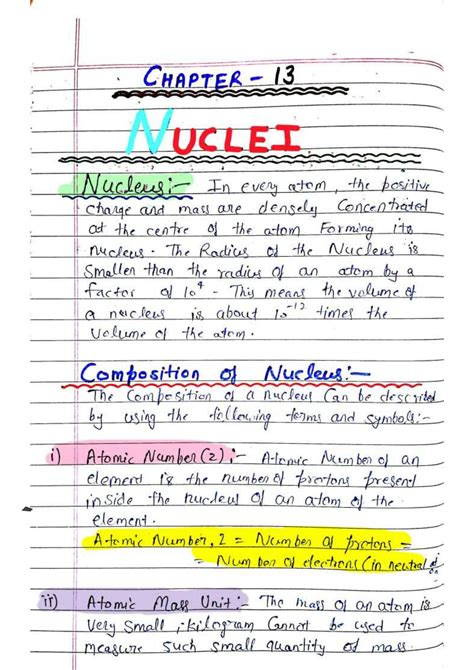 CHAPTER - 13
NUCLEI
Nucleus:- In every atom, the positive
charge and mass are densely Concentrated
at the centre of the atom Forming its
nucleus. The Radius of the Nucleus is
Smaller than the radius of an atom by a
factor of 10⁴ - This means the volume of
a nucleus is about 10⁻¹² times the
Volume of the atom.
Composition of Nucleus:-
The Composition of a nucleus Can be described
by using the following terms and symbols:-
i) Atomic Number (Z):- Atomic Number of an
element is the number of protons present
inside the nucleus of an atom of the
element.
Atomic Number, Z = Number of protons =
= Number of electrons (in neutral
ii) Atomic Mass Unit:- The mass of an atom is
Very Small, kilogram Cannot be used to
measure such small quantity of mass.